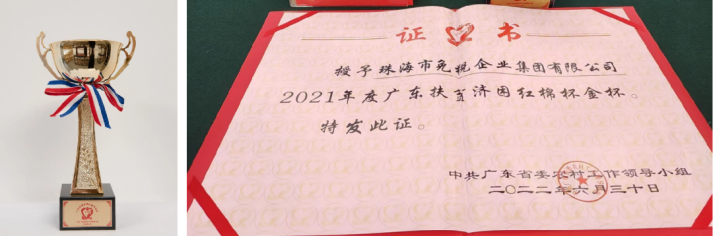 证 书
授予珠海市免税企业集团有限公司
2021年度广东扶贫济困红棉杯金杯。
特发此证。
中共广东省委农村工作领导小组
二〇二二年六月三十日